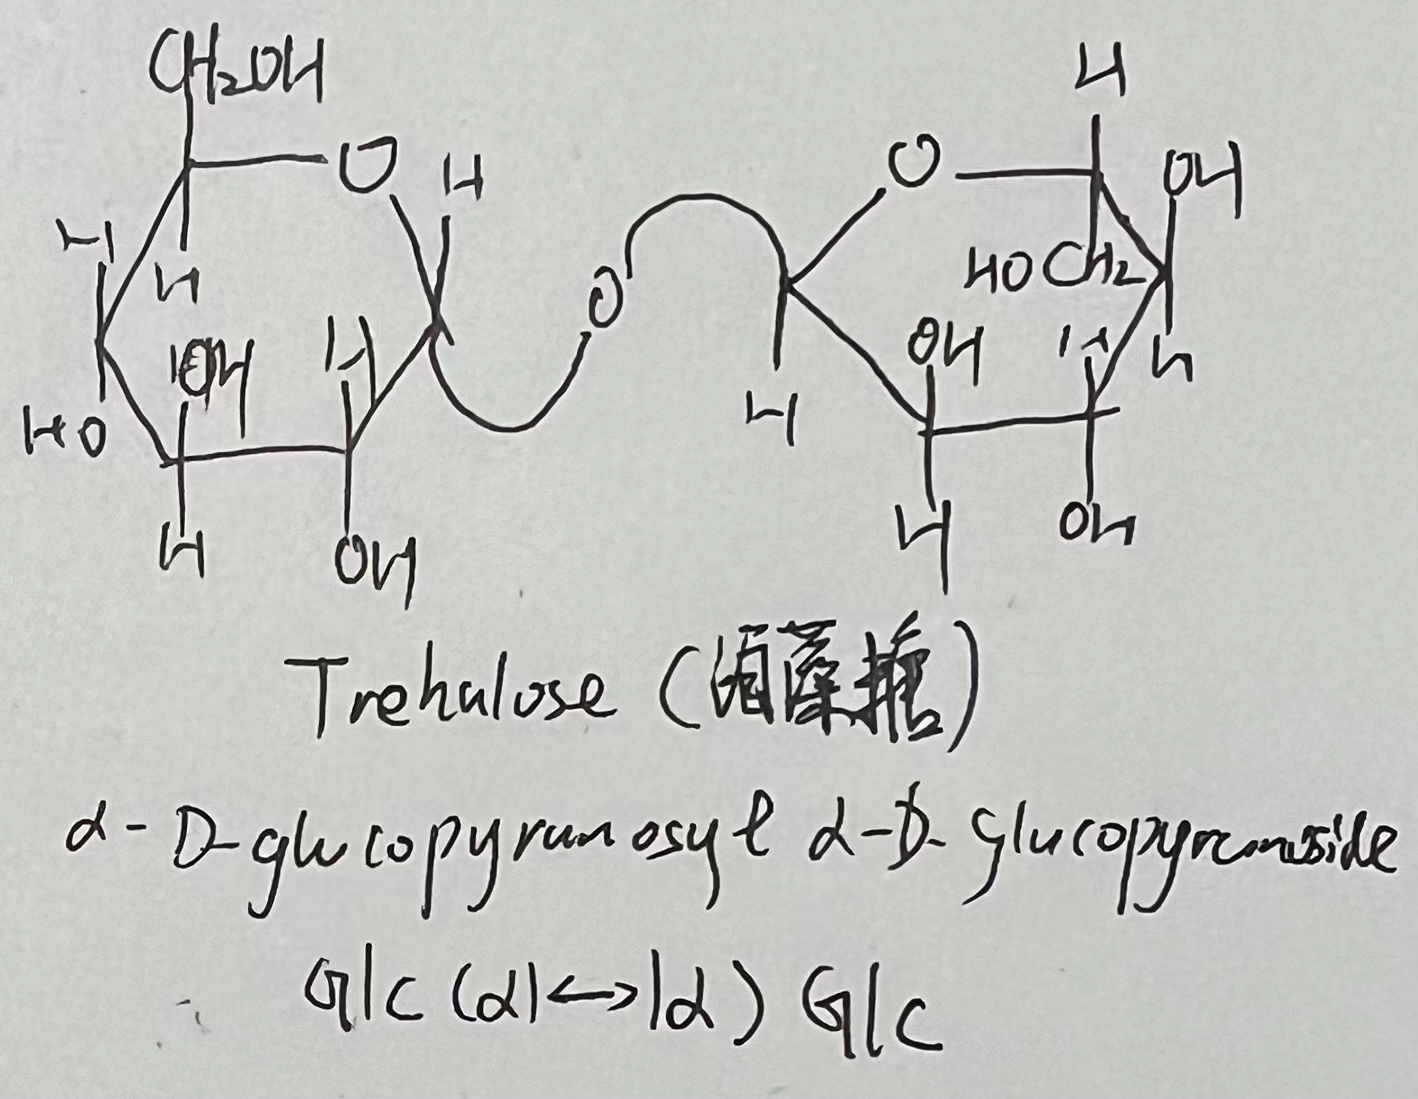 CH₂OH
H
O
H
O
OH
H
H
O
HOCH₂
OH
H
OH
H
H
HO
H
H
OH
H
OH
Trehalose (海藻糖)
α-D-glucopyranosyl α-D-glucopyranoside
Glc (α1↔1α) Glc